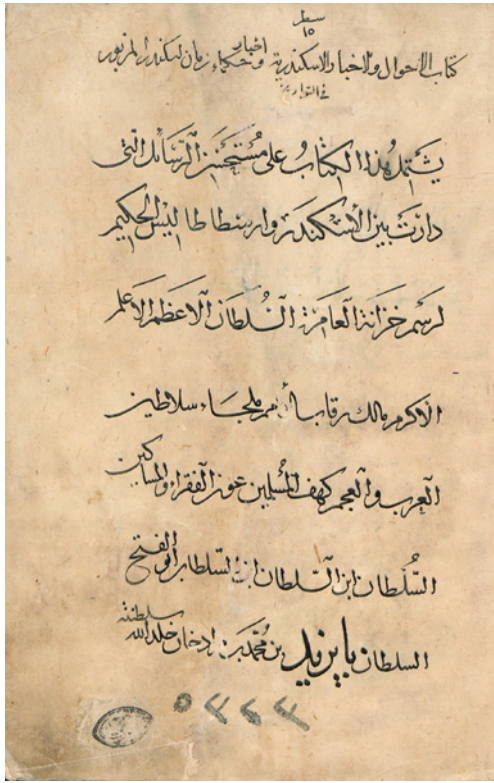 سطر
١٥
كتاب الاحوال والاخبار الاسكندرية وحكماء زمان اسكندر المزبور
اخبار
في التواريخ
يشتمل هذا الكتاب على مستحسن الرسائل التى
دارت بين الاسكندر وارسطاطاليس الحكيم
لرسم خزانة العامرة السلطان الاعظم الاعلم
الاكرم مالك رقاب الأمم ملجاء سلاطين
العرب والعجم كهف المسلمين عون الفقراء والمساكين
السلطان ابن السلطان ابن السلطان ابو الفتح
السلطان بايزيد بن محمد بن مرادخان خلد الله سلطنته